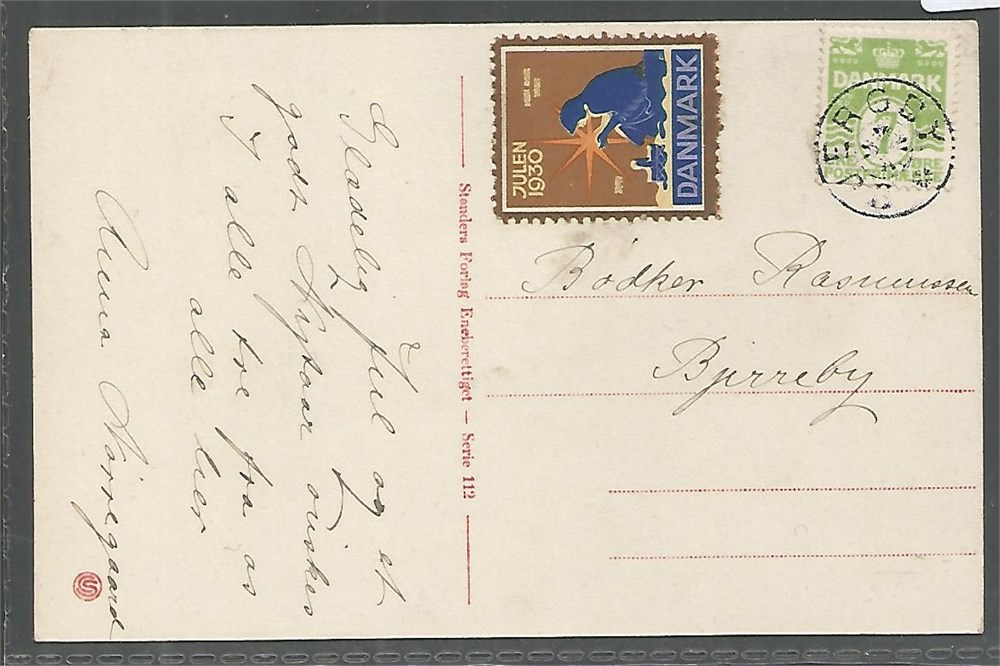 Glædelig Jul og et
godt Nytaar önskes
I alle tre fra os
alle her
Anna Nörregaard
Stenders Forlag Eneberettiget — Serie 112
JULEN
1930
DANMARK
DANMARK
7
ØRE
Bödker Rasmussen
Bjerreby